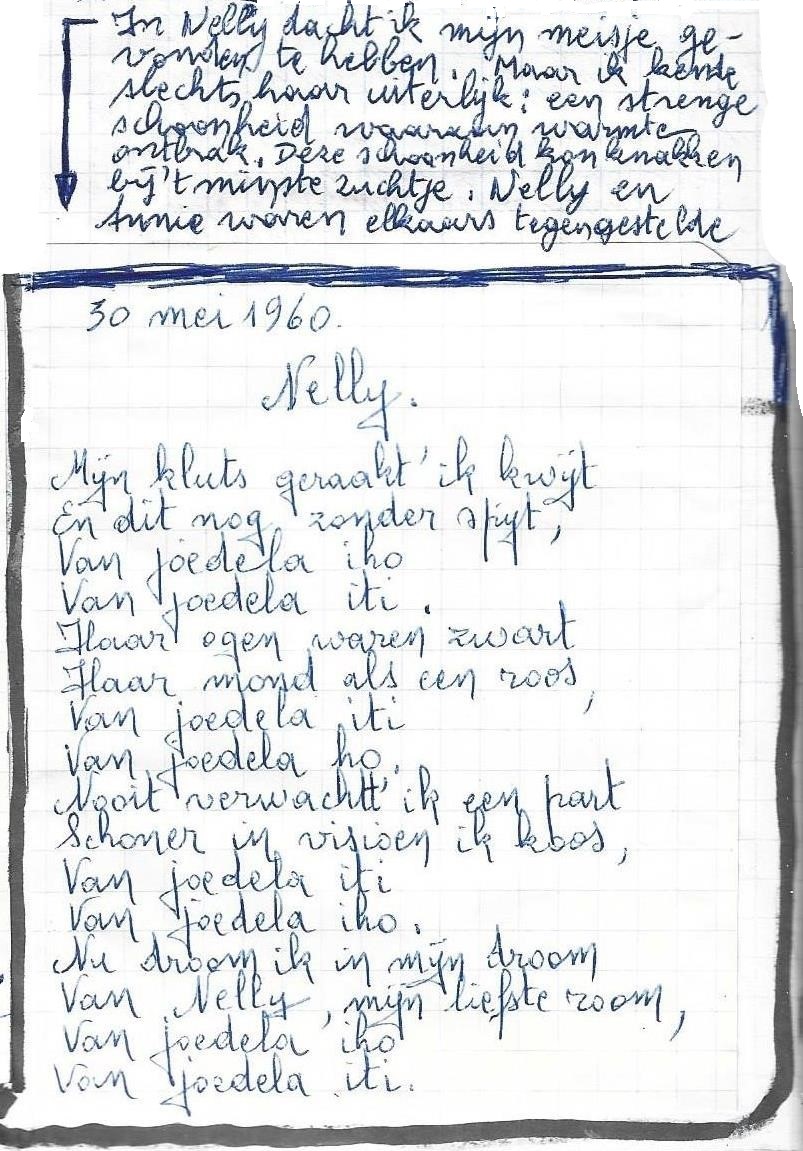 In Nelly dacht ik mijn meisje ge-
vonden te hebben. Maar ik kende
slechts haar uiterlijk: een strenge
schoonheid waaraan warmte
ontbrak. Deze schoonheid kon knakken
bij 't minste zuchtje. Nelly en
Annie waren elkaars tegengestelde
30 mei 1960.
Nelly.
Mijn kluts geraakt' ik kwijt
En dit nog zonder spijt,
Van joedela iho
Van joedela iti.
Haar ogen waren zwart
Haar mond als een roos,
Van joedela iti
Van joedela ho.
Nooit verwachtt' ik een part
Schoner in visioen ik koos,
Van joedela iti
Van joedela iho.
Nu droom ik in mijn droom
Van Nelly, mijn liefste room,
Van joedela iho
Van joedela iti.